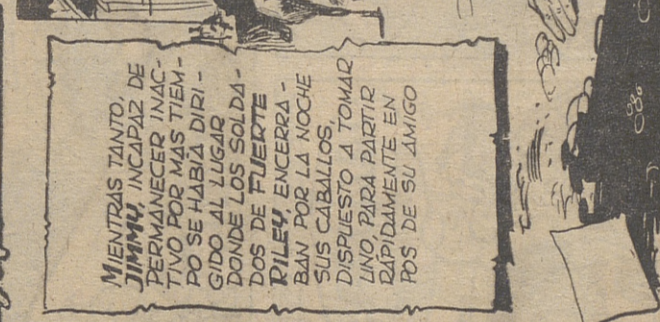 MIENTRAS TANTO,
JIMMY, INCAPAZ DE
PERMANECER INAC-
TIVO POR MAS TIEM-
PO SE HABÍA DIRI-
GIDO AL LUGAR
DONDE LOS SOLDA-
DOS DE FUERTE
RILEY, ENCERRA-
BAN POR LA NOCHE
SUS CABALLOS,
DISPUESTO A TOMAR
UNO, PARA PARTIR
RÁPIDAMENTE EN
POS DE SU AMIGO